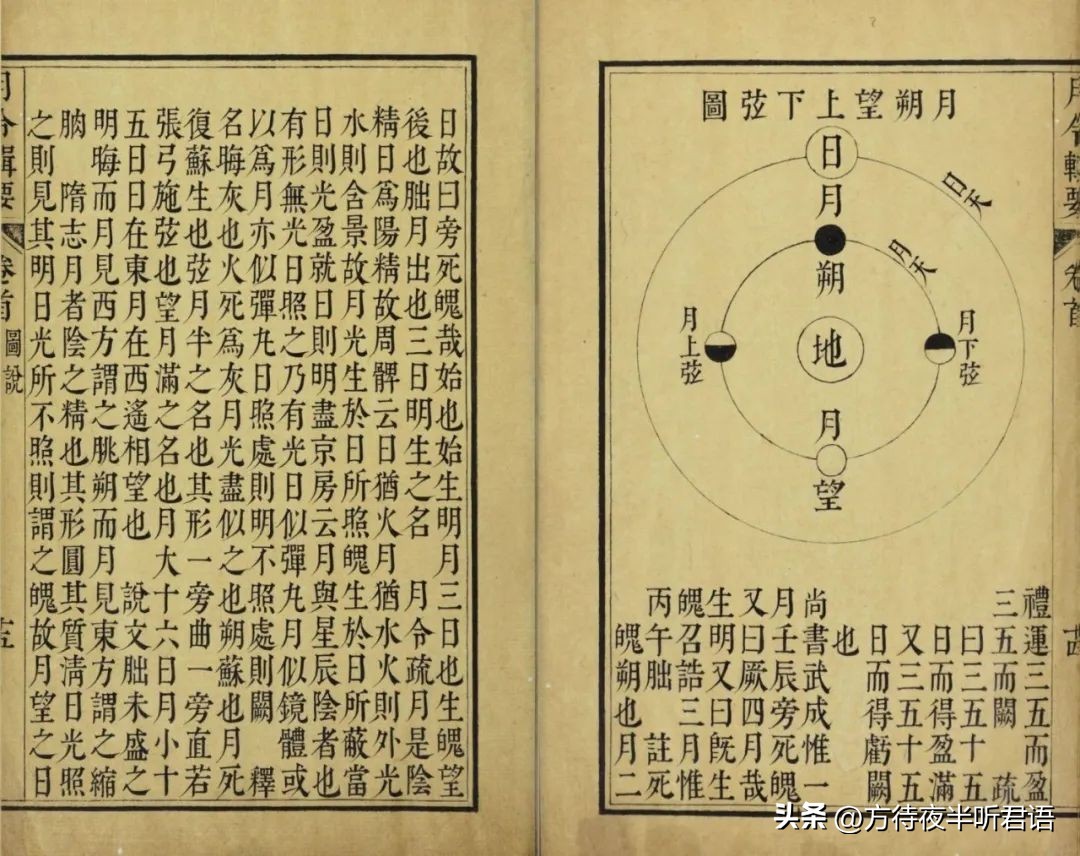 月令輯要
卷首
月朔望上下弦圖
日
日天
月
月天
朔
地
月上弦
月下弦
月
望
禮運三五而盈
三五而闕 疏
曰三五十五
日而得盈滿
又三五十五
日而得虧闕
也
尚書武成惟一
月壬辰旁死魄
又曰厥四月哉
生明又曰既生
魄召誥三月惟
丙午朏 註死
魄朔也月二
日故曰旁死魄哉始也始生明月三日也生魄望
後也朏月出也三日明生之名 月令疏月是陰
精日爲陽精故周髀云日猶火月猶水火則外光
水則含景故月光生於日所照魄生於日所蔽當
日則光盈就日則明盡京房云月與星辰陰者也
有形無光日照之乃有光日似彈丸月似鏡體或
以爲月亦似彈丸日照處則明不照處則闕 釋
名晦灰也火死爲灰月光盡似之也朔蘇也月死
復蘇生也弦月半之名也其形一旁曲一旁直若
張弓施弦也望月滿之名也月大十六日月小十
五日日在東月在西遙相望也 說文朏未盛之
明晦而月見西方謂之朓朔而月見東方謂之縮
朒 隋志月者陰之精也其形圓其質清日光照
之則見其明日光所不照則謂之魄故月望之日
月令輯要
卷首
圖說
头条 @方待夜半听君语